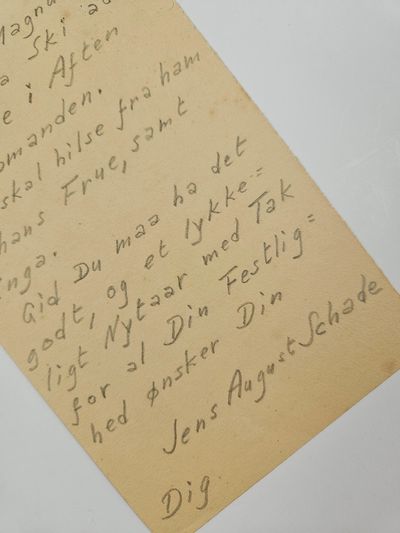 Magnu
Ski
e i Aften
omanden.
skal hilse fra ham
hans Frue, samt
Inga.
Gid Du maa ha det
godt, og et lykke=
ligt Nytaar med Tak
for al Din Festlig=
hed ønsker Din
Jens August Schade
Dig.